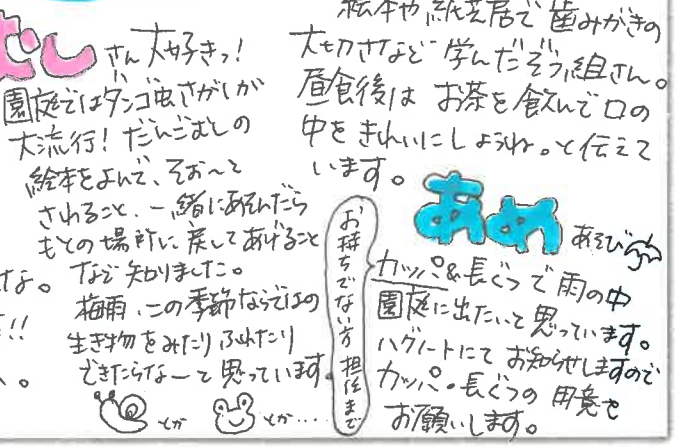 むしさん大好きっ!
園庭ではダンゴ虫さがしが
大流行! だんごむしの
絵本をよんで、そお〜っと
さわること、一緒にあそんだら
もとの場所に戻してあげること
など知りました。
梅雨、この季節ならではの
生き物をみたりふれたり
できたらな〜って思っています。
とか とか‥‥
な。
!!
、。
絵本や紙芝居で歯みがきの
大切さなど学んだぞう組さん。
昼食後は お茶を飲んで口の
中をきれいにしようね。と伝えて
います。
あめあそび
カッパ&長ぐつで雨の中
園庭に出たいと思っています。
ハグノートにて お知らせしますので
カッパ・長ぐつの 用意を
お願いします。
お持ちでない方 担任まで